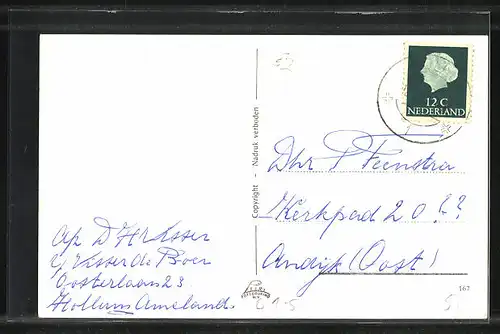 12 C
NEDERLAND
Copyright - Nadruk verboden
Dhr P Feenstra
Kerkpad 20 ??
Andijk (Oost)
D H Visser
Visser de Boer
Oosterlaan 23
Hollum Ameland
167